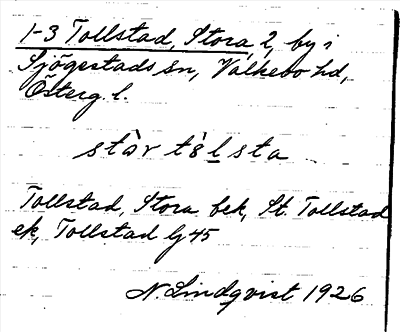 1-3 Tollstad, Stora, 2, by i
Sjögestads sn, Valkebo hd,
Österg. l.
står tålsta
Tollstad, Stora bek, St. Tollstad
ek, Tollstad lj 45
N. Lindqvist 1926